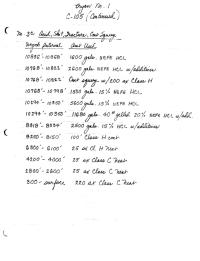 Bryan No. 1
C-105 (Continued)
No. 32 Acid, Shot, Fracture, Cmt Squeeze
Depth Interval Amt Used
10892'-10822' 1500 gals. NEFE HCL
10768'-10822' 2500 gals. NEFE HCL w/additives
10768'-10822' Cmt squeeze w/200 sx Class H
10768'-10798' 1850 gals. 15% NEFE HCL
10294'-10350' 2500 gals. 15% NEFE HCL
10294'-10350' 11000 gals. 40# gelled 20% NEFE HCL w/add.
8818'-8834' 2500 gals. 15% HCL w/additives
8200'-8150' 100' Class H cmt
6300'-6100' 25 sx Cl. H neat
4200'-4000' 25 sx Class C neat
2800'-2600' 25 sx Class C neat
300-surface 220 sx Class C neat